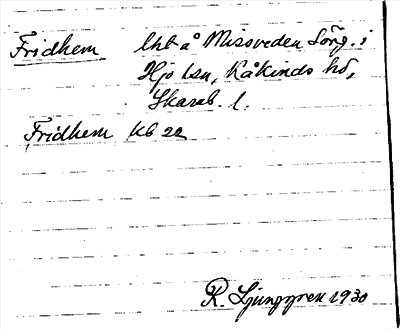 Fridhem lht å Missveden Sörg. i
Hjo lsn, Kåkinds hd,
Skarab. l.
Fridhem Kb 22
R. Ljunggren 1930